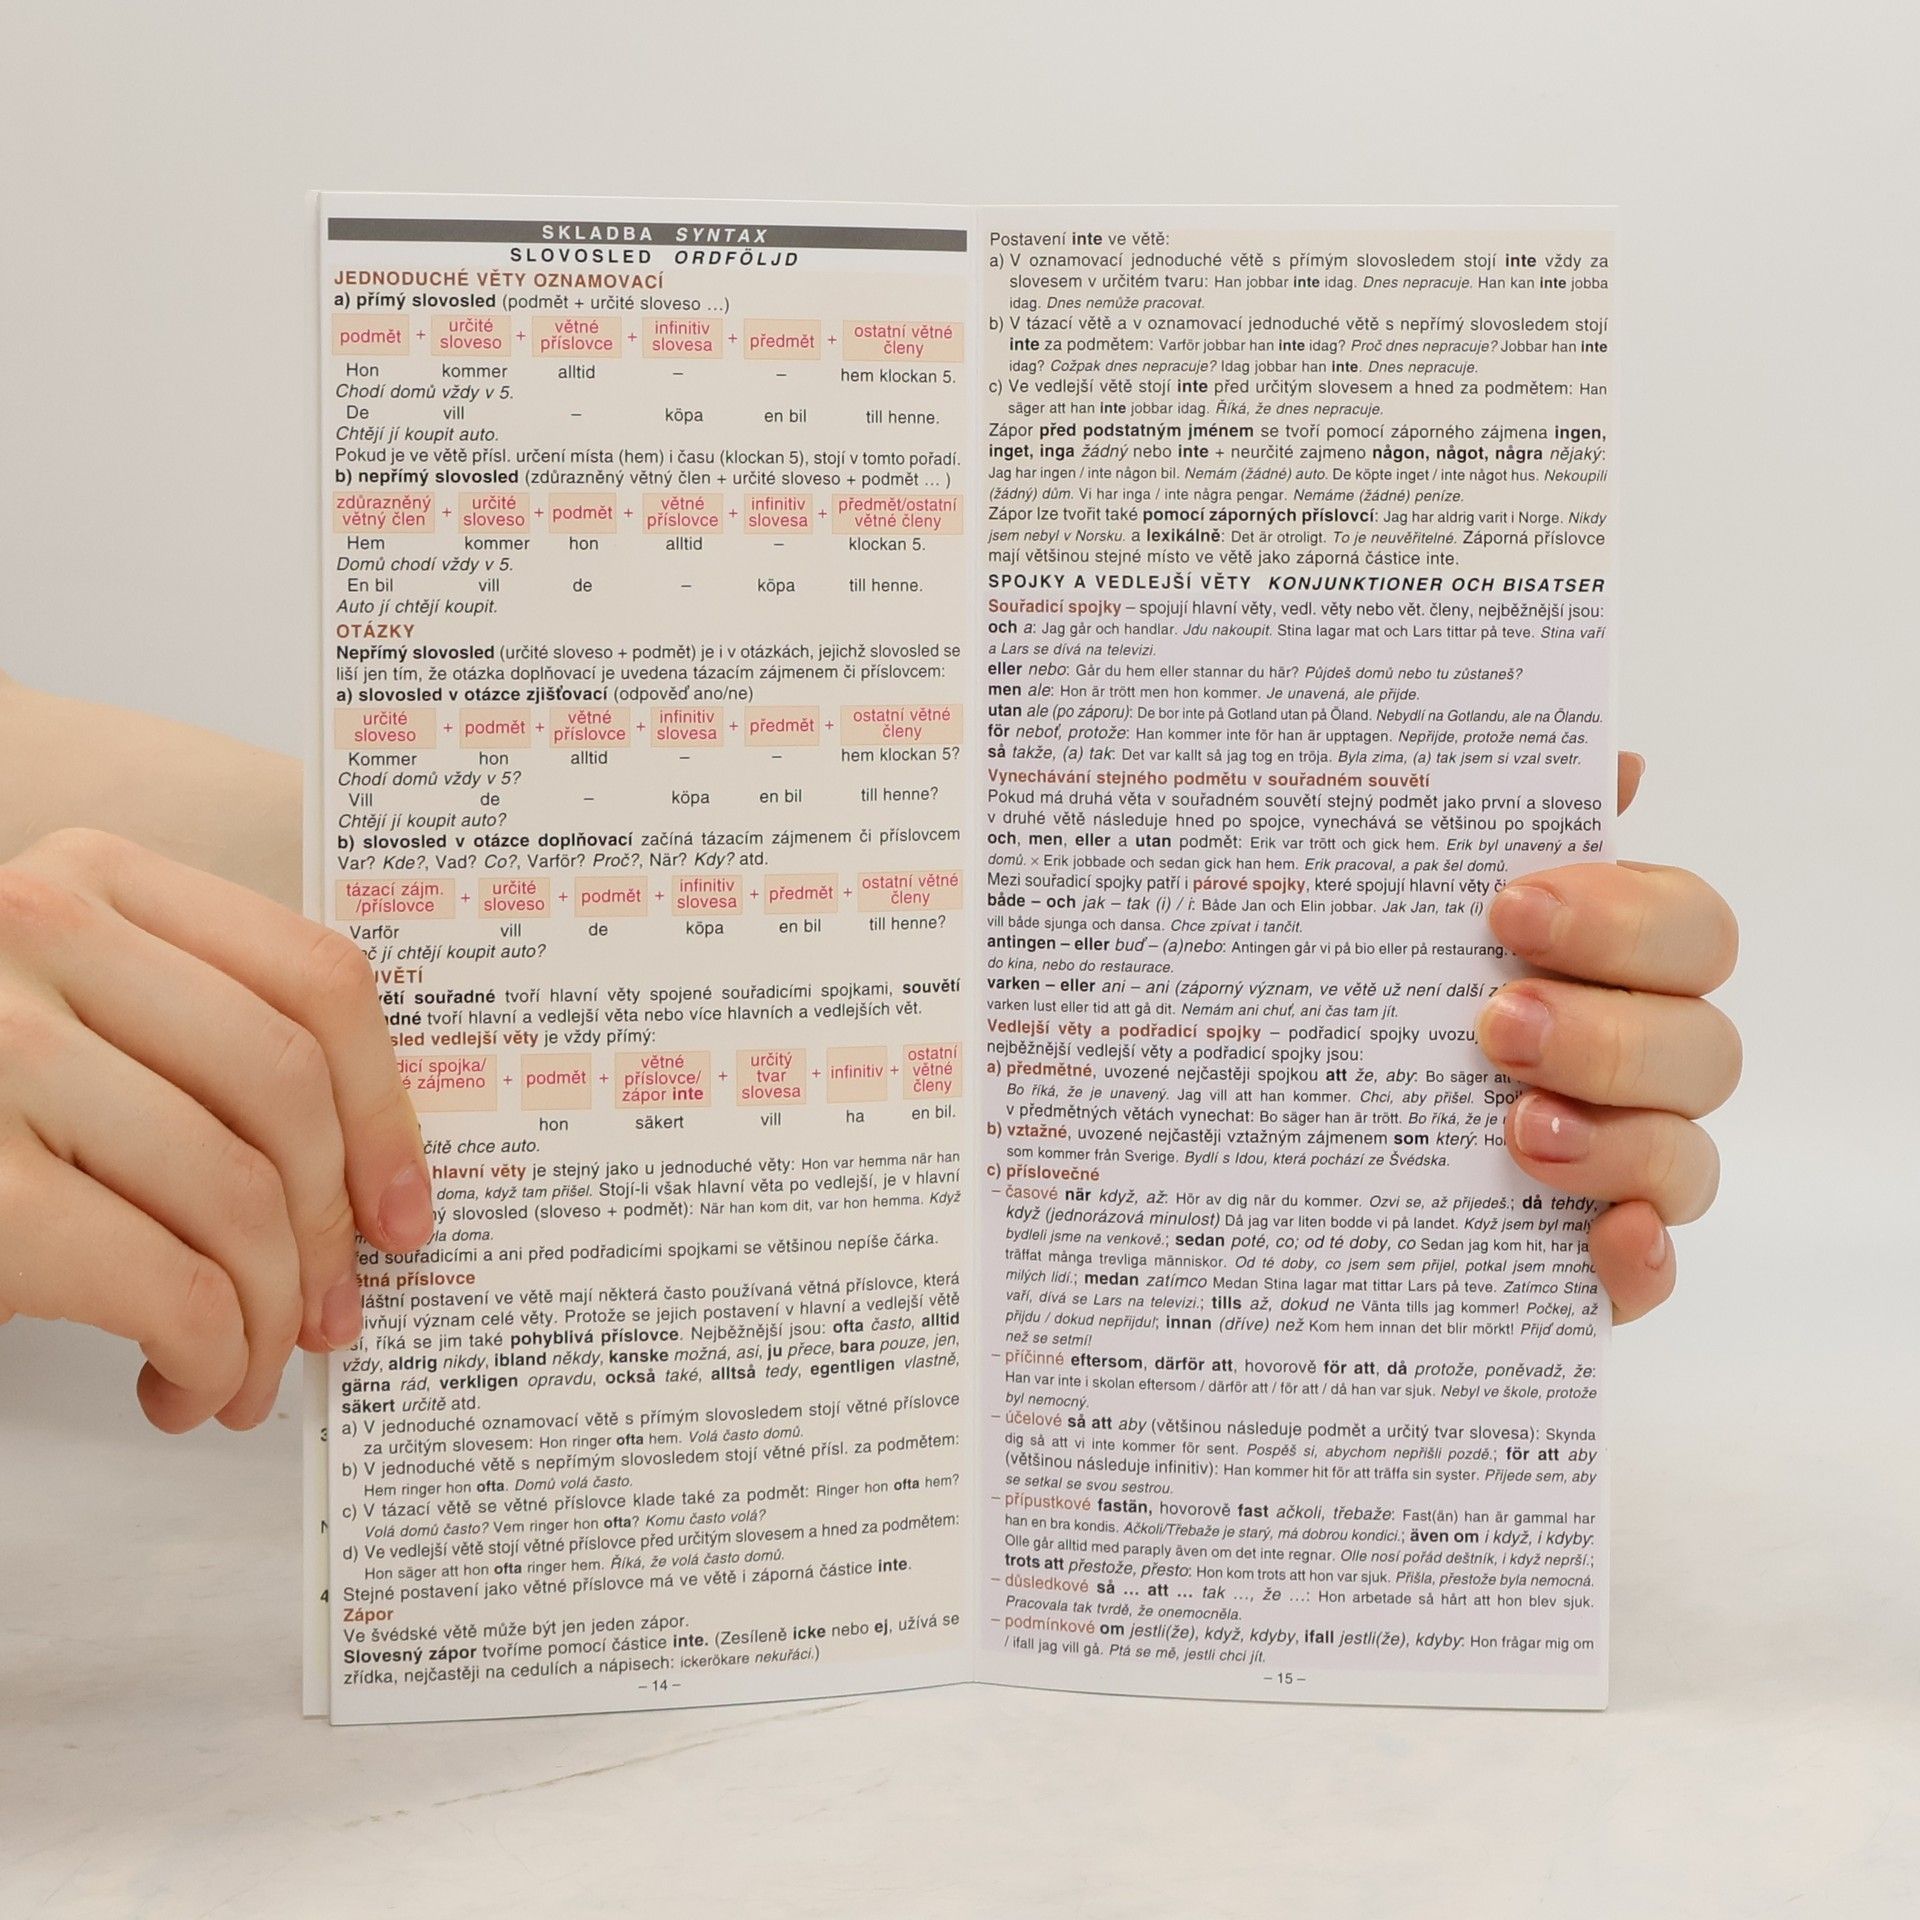 SKLADBA SYNTAX
SLOVOSLED ORDFÖLJD
JEDNODUCHÉ VĚTY OZNAMOVACÍ
a) přímý slovosled (podmět + určité sloveso ...)
podmět + určité sloveso + větné příslovce + infinitiv slovesa + předmět + ostatní větné členy
Hon kommer alltid – – hem klockan 5.
Chodí domů vždy v 5.
De vill – köpa en bil till henne.
Chtějí jí koupit auto.
Pokud je ve větě přísl. určení místa (hem) i času (klockan 5), stojí v tomto pořadí.
b) nepřímý slovosled (zdůrazněný větný člen + určité sloveso + podmět ... )
zdůrazněný větný člen + určité sloveso + podmět + větné příslovce + infinitiv slovesa + předmět/ostatní větné členy
Hem kommer hon alltid – klockan 5.
Domů chodí vždy v 5.
En bil vill de – köpa till henne.
Auto jí chtějí koupit.
OTÁZKY
Nepřímý slovosled (určité sloveso + podmět) je i v otázkách, jejichž slovosled se
liší jen tím, že otázka doplňovací je uvedena tázacím zájmenem či příslovcem:
a) slovosled v otázce zjišťovací (odpověď ano/ne)
určité sloveso + podmět + větné příslovce + infinitiv slovesa + předmět + ostatní větné členy
Kommer hon alltid – – hem klockan 5?
Chodí domů vždy v 5?
Vill de – köpa en bil till henne?
Chtějí jí koupit auto?
b) slovosled v otázce doplňovací začíná tázacím zájmenem či příslovcem
Var? Kde?, Vad? Co?, Varför? Proč?, När? Kdy? atd.
tázací zájm. /příslovce + určité sloveso + podmět + infinitiv slovesa + předmět + ostatní větné členy
Varför vill de köpa en bil till henne?
jí chtějí koupit auto?
tvoří hlavní věty spojené souřadicími spojkami, souvětí
tvoří hlavní a vedlejší věta nebo více hlavních a vedlejších vět.
vedlejší věty je vždy přímý:
spojka/ zájmeno + podmět + větné příslovce/ zápor inte + určitý tvar slovesa + infinitiv + ostatní větné členy
hon säkert vill ha en bil.
chce auto.
hlavní věty je stejný jako u jednoduché věty: Hon var hemma när han
doma, když tam přišel. Stojí-li však hlavní věta po vedlejší, je v hlavní
slovosled (sloveso + podmět): När han kom dit, var hon hemma. Když
doma.
souřadicími a ani před podřadicími spojkami se většinou nepíše čárka.
příslovce
postavení ve větě mají některá často používaná větná příslovce, která
význam celé věty. Protože se jejich postavení v hlavní a vedlejší větě
říká se jim také pohyblivá příslovce. Nejběžnější jsou: ofta často, alltid
vždy, aldrig nikdy, ibland někdy, kanske možná, asi, ju přece, bara pouze, jen,
gärna rád, verkligen opravdu, också také, alltså tedy, egentligen vlastně,
säkert určitě atd.
a) V jednoduché oznamovací větě s přímým slovosledem stojí větné příslovce
za určitým slovesem: Hon ringer ofta hem. Volá často domů.
b) V jednoduché větě s nepřímým slovosledem stojí větné přísl. za podmětem:
Hem ringer hon ofta. Domů volá často.
c) V tázací větě se větné příslovce klade také za podmět: Ringer hon ofta hem?
Volá domů často? Vem ringer hon ofta? Komu často volá?
d) Ve vedlejší větě stojí větné příslovce před určitým slovesem a hned za podmětem:
Hon säger att hon ofta ringer hem. Říká, že volá často domů.
Stejné postavení jako větné příslovce má ve větě i záporná částice inte.
Zápor
Ve švédské větě může být jen jeden zápor.
Slovesný zápor tvoříme pomocí částice inte. (Zesíleně icke nebo ej, užívá se
zřídka, nejčastěji na cedulích a nápisech: ickerökare nekuřáci.)
– 14 –
Postavení inte ve větě:
a) V oznamovací jednoduché větě s přímým slovosledem stojí inte vždy za
slovesem v určitém tvaru: Han jobbar inte idag. Dnes nepracuje. Han kan inte jobba
idag. Dnes nemůže pracovat.
b) V tázací větě a v oznamovací jednoduché větě s nepřímým slovosledem stojí
inte za podmětem: Varför jobbar han inte idag? Proč dnes nepracuje? Jobbar han inte
idag? Cožpak dnes nepracuje? Idag jobbar han inte. Dnes nepracuje.
c) Ve vedlejší větě stojí inte před určitým slovesem a hned za podmětem: Han
säger att han inte jobbar idag. Říká, že dnes nepracuje.
Zápor před podstatným jménem se tvoří pomocí záporného zájmena ingen,
inget, inga žádný nebo inte + neurčité zajmeno någon, något, några nějaký:
Jag har ingen / inte någon bil. Nemám (žádné) auto. De köpte inget / inte något hus. Nekoupili
(žádný) dům. Vi har inga / inte några pengar. Nemáme (žádné) peníze.
Zápor lze tvořit také pomocí záporných příslovcí: Jag har aldrig varit i Norge. Nikdy
jsem nebyl v Norsku. a lexikálně: Det är otroligt. To je neuvěřitelné. Záporná příslovce
mají většinou stejné místo ve větě jako záporná částice inte.
SPOJKY A VEDLEJŠÍ VĚTY KONJUNKTIONER OCH BISATSER
Souřadicí spojky – spojují hlavní věty, vedl. věty nebo vět. členy, nejběžnější jsou:
och a: Jag går och handlar. Jdu nakoupit. Stina lagar mat och Lars tittar på teve. Stina vaří
a Lars se dívá na televizi.
eller nebo: Går du hem eller stannar du här? Půjdeš domů nebo tu zůstaneš?
men ale: Hon är trött men hon kommer. Je unavená, ale přijde.
utan ale (po záporu): De bor inte på Gotland utan på Öland. Nebydlí na Gotlandu, ale na Ölandu.
för neboť, protože: Han kommer inte för han är upptagen. Nepřijde, protože nemá čas.
så takže, (a) tak: Det var kallt så jag tog en tröja. Byla zima, (a) tak jsem si vzal svetr.
Vynechávání stejného podmětu v souřadném souvětí
Pokud má druhá věta v souřadném souvětí stejný podmět jako první a sloveso
v druhé větě následuje hned po spojce, vynechává se většinou po spojkách
och, men, eller a utan podmět: Erik var trött och gick hem. Erik byl unavený a šel
domů. × Erik jobbade och sedan gick han hem. Erik pracoval, a pak šel domů.
Mezi souřadicí spojky patří i párové spojky, které spojují hlavní věty či
både – och jak – tak (i) / i: Både Jan och Elin jobbar. Jak Jan, tak (i)
vill både sjunga och dansa. Chce zpívat i tančit.
antingen – eller buď – (a)nebo: Antingen går vi på bio eller på restaurang.
do kina, nebo do restaurace.
varken – eller ani – ani (záporný význam, ve větě už není další
varken lust eller tid att gå dit. Nemám ani chuť, ani čas tam jít.
Vedlejší věty a podřadicí spojky – podřadicí spojky
nejběžnější vedlejší věty a podřadicí spojky jsou:
a) předmětné, uvozené nejčastěji spojkou att že, aby: Bo säger att
Bo říká, že je unavený. Jag vill att han kommer. Chci, aby přišel.
v předmětných větách vynechat: Bo säger han är trött. Bo říká, že je
b) vztažné, uvozené nejčastěji vztažným zájmenem som který:
som kommer från Sverige. Bydlí s Idou, která pochází ze Švédska.
c) příslovečné
– časové när když, až: Hör av dig när du kommer. Ozvi se, až přijedeš.; då tehdy,
když (jednorázová minulost) Då jag var liten bodde vi på landet. Když jsem byl malý
bydleli jsme na venkově.; sedan poté, co; od té doby, co Sedan jag kom hit, har
träffat många trevliga människor. Od té doby, co jsem sem přijel, potkal jsem mnoho
milých lidí.; medan zatímco Medan Stina lagar mat tittar Lars på teve. Zatímco Stina
vaří, dívá se Lars na televizi.; tills až, dokud ne Vänta tills jag kommer! Počkej, až
přijdu / dokud nepřijdu!; innan (dříve) než Kom hem innan det blir mörkt! Přijď domů,
než se setmí!
– příčinné eftersom, därför att, hovorově för att, då protože, poněvadž, že:
Han var inte i skolan eftersom / därför att / för att / då han var sjuk. Nebyl ve škole, protože
byl nemocný.
– účelové så att aby (většinou následuje podmět a určitý tvar slovesa): Skynda
dig så att vi inte kommer för sent. Pospěš si, abychom nepřišli pozdě.; för att aby
(většinou následuje infinitiv): Han kommer hit för att träffa sin syster. Přijede sem, aby
se setkal se svou sestrou.
– přípustkové fastän, hovorově fast ačkoli, třebaže: Fast(än) han är gammal har
han en bra kondis. Ačkoli/Třebaže je starý, má dobrou kondici.; även om i když, i kdyby:
Olle går alltid med paraply även om det inte regnar. Olle nosí pořád deštník, i když neprší.;
trots att přestože, přesto: Hon kom trots att hon var sjuk. Přišla, přestože byla nemocná.
– důsledkové så ... att ... tak ..., že ...: Hon arbetade så hårt att hon blev sjuk.
Pracovala tak tvrdě, že onemocněla.
– podmínkové om jestli(že), když, kdyby, ifall jestli(že), kdyby: Hon frågar mig om
/ ifall jag vill gå. Ptá se mě, jestli chci jít.
– 15 –